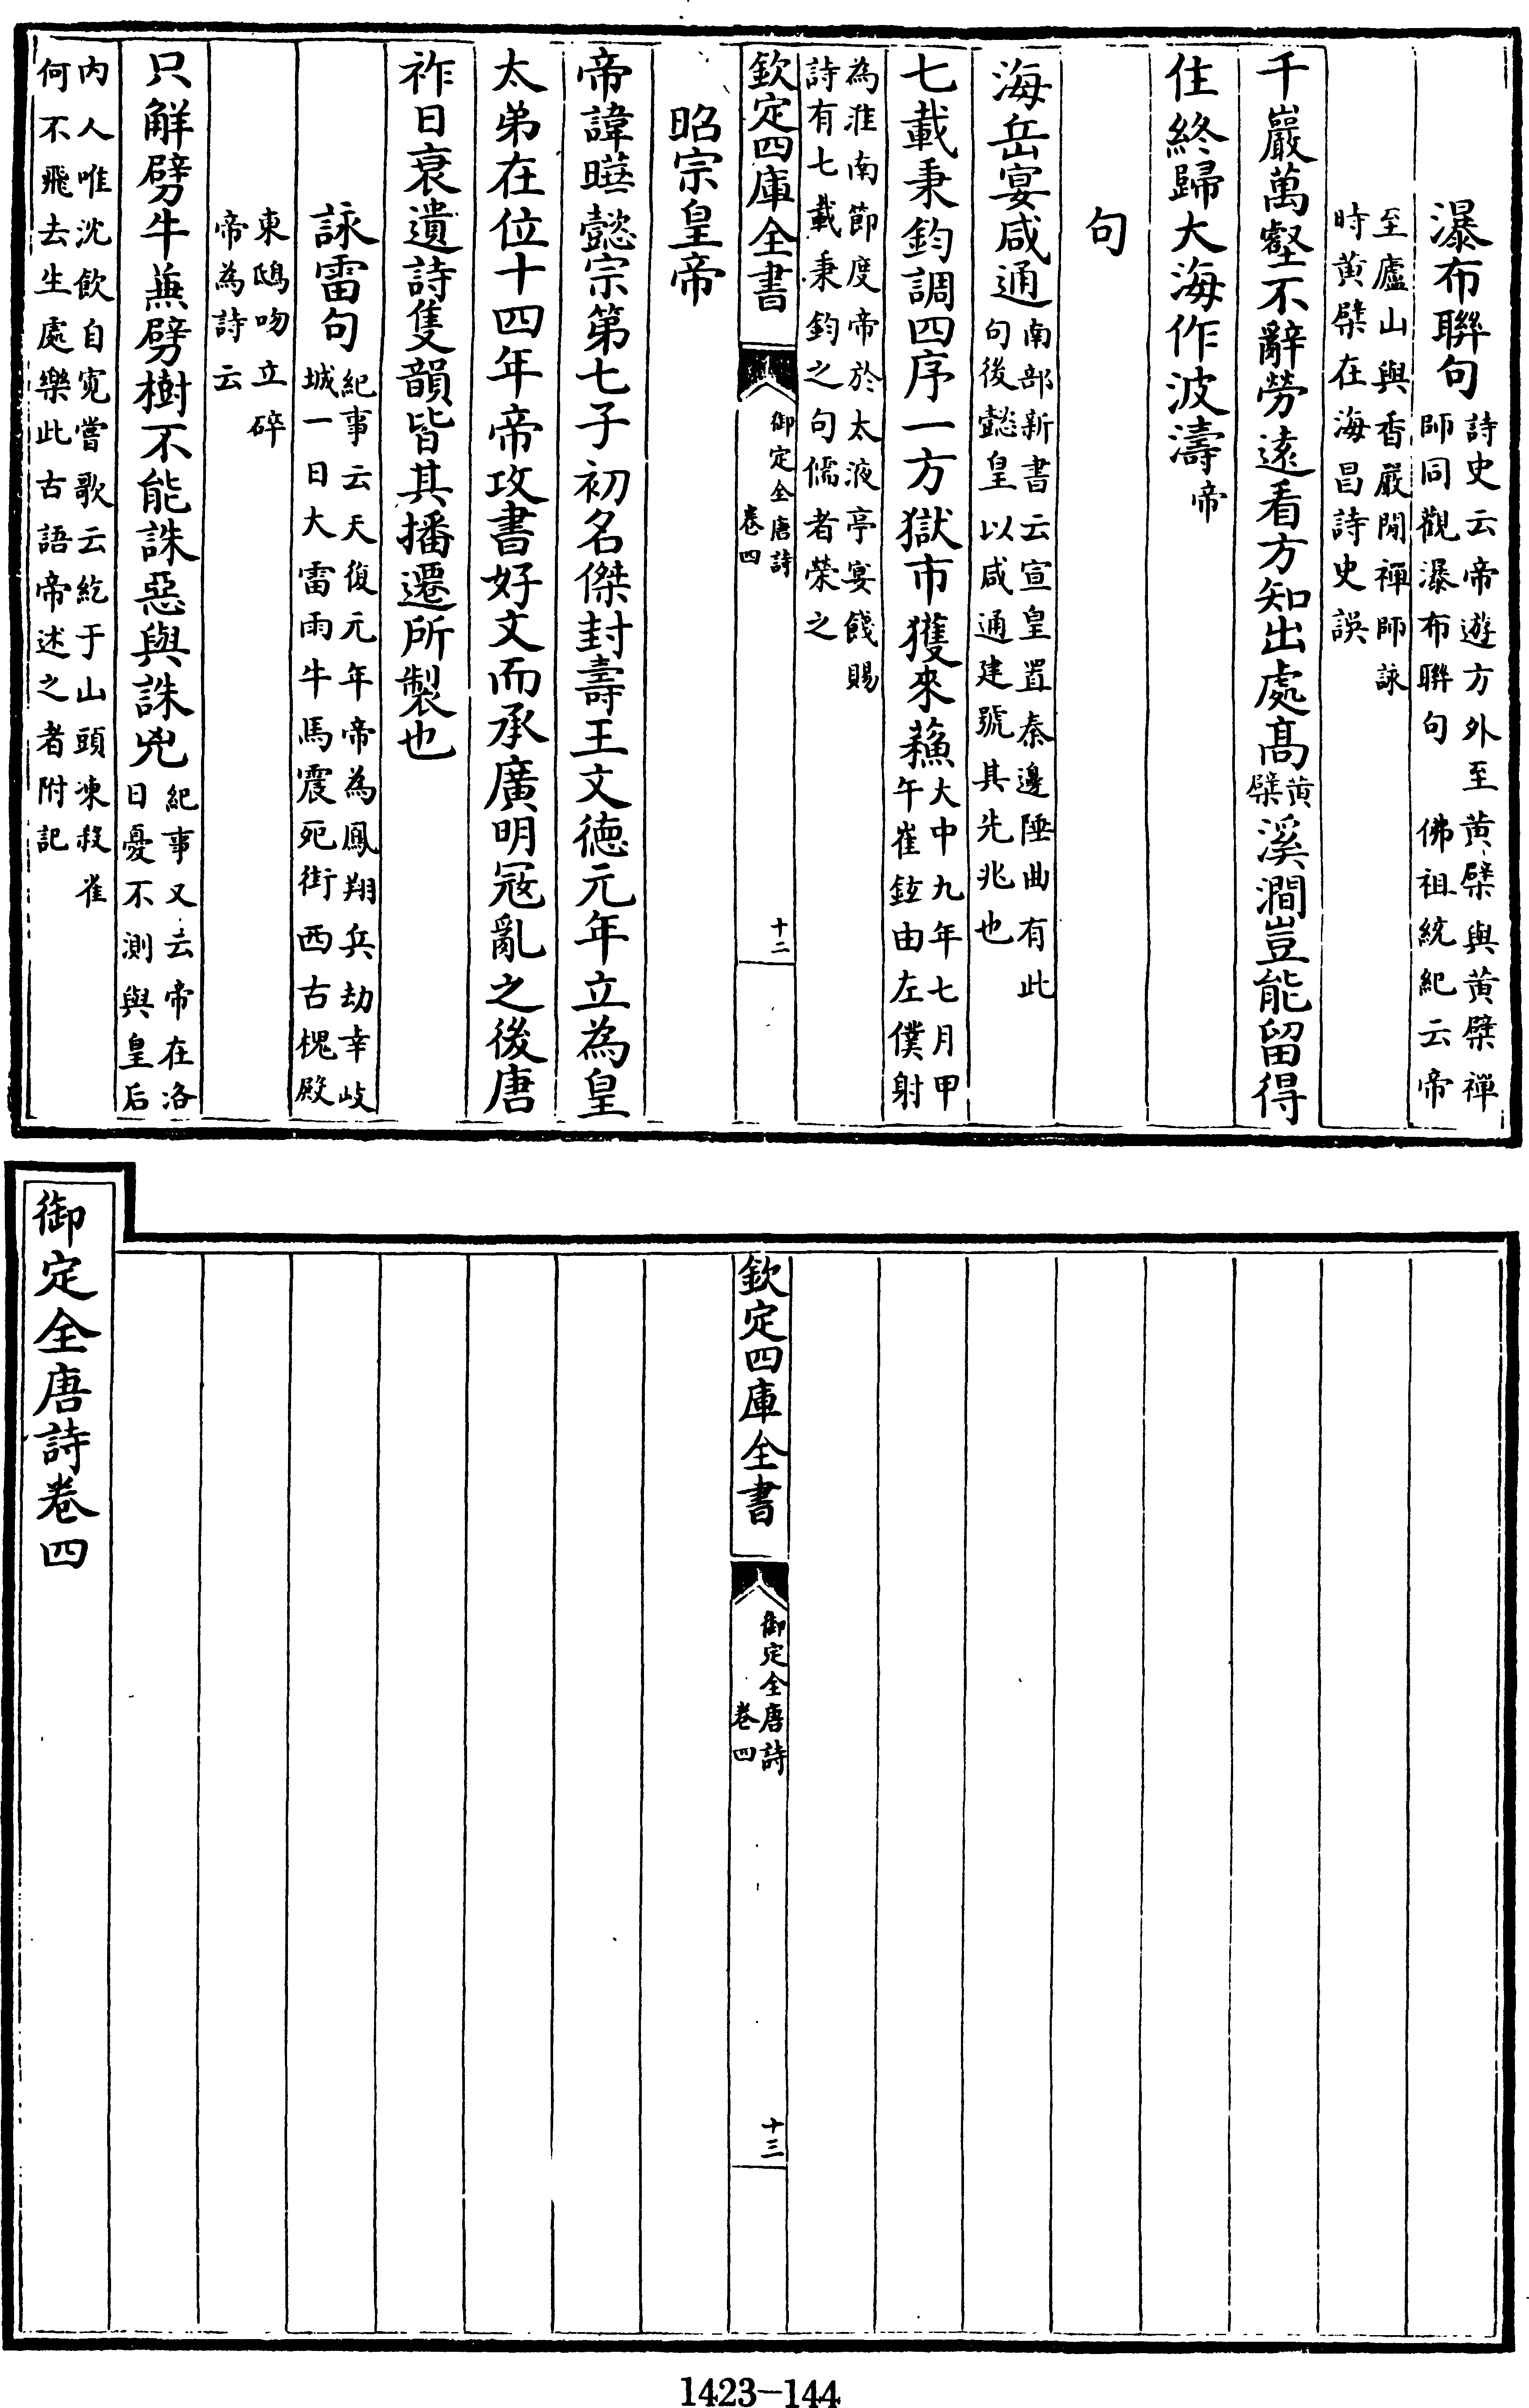 瀑布聯句詩史云帝遊方外至黄檗與黄檗禪師同觀瀑布聯句　佛祖統紀云帝
至廬山與香嚴閒禪師詠時黄檗在海昌詩史誤
千巖萬壑不辭勞遠看方知出處髙黄檗溪澗豈能留得
住終歸大海作波濤帝
句
海岳宴咸通南部新書云宣皇置秦邊陲曲有此句後懿皇以咸通建號其先兆也
七載秉鈞調四序一方獄市獲來蘓大中九年七月甲午崔鉉由左僕射
為淮南節度帝於太液亭宴餞賜詩有七載秉鈞之句儒者榮之
欽定四庫全書　御定全唐詩卷四　十二
昭宗皇帝
帝諱曄懿宗第七子初名傑封壽王文德元年立為皇
太弟在位十四年帝攻書好文而承廣明冦亂之後唐
祚日衰遺詩隻韻皆其播遷所製也
詠雷句紀事云天復元年帝為鳳翔兵劫幸岐城一日大雷雨牛馬震死街西古槐殿
東鴟吻立碎帝為詩云
只解劈牛兼劈樹不能誅惡與誅兇紀事又云帝在洛日憂不測與皇后
内人唯沈飲自寛嘗歌云紇于山頭凍殺雀何不飛去生處樂此古語帝述之者附記
欽定四庫全書　御定全唐詩卷四　十三
御定全唐詩卷四
1423-144